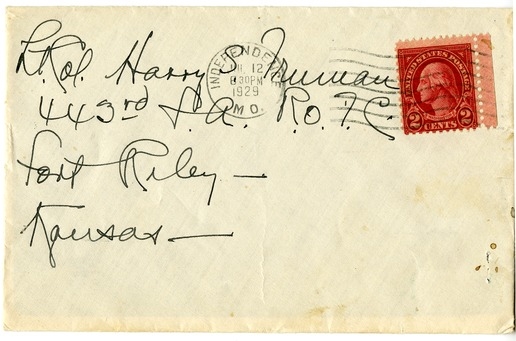 Lt. Col. Harry S. Truman
443rd F.A. R.O.T.C.
Fort Riley —
Kansas —
INDEPENDENCE
JUL 12
8 30PM
1929
MO.
UNITED STATES POSTAGE
2 CENTS 2